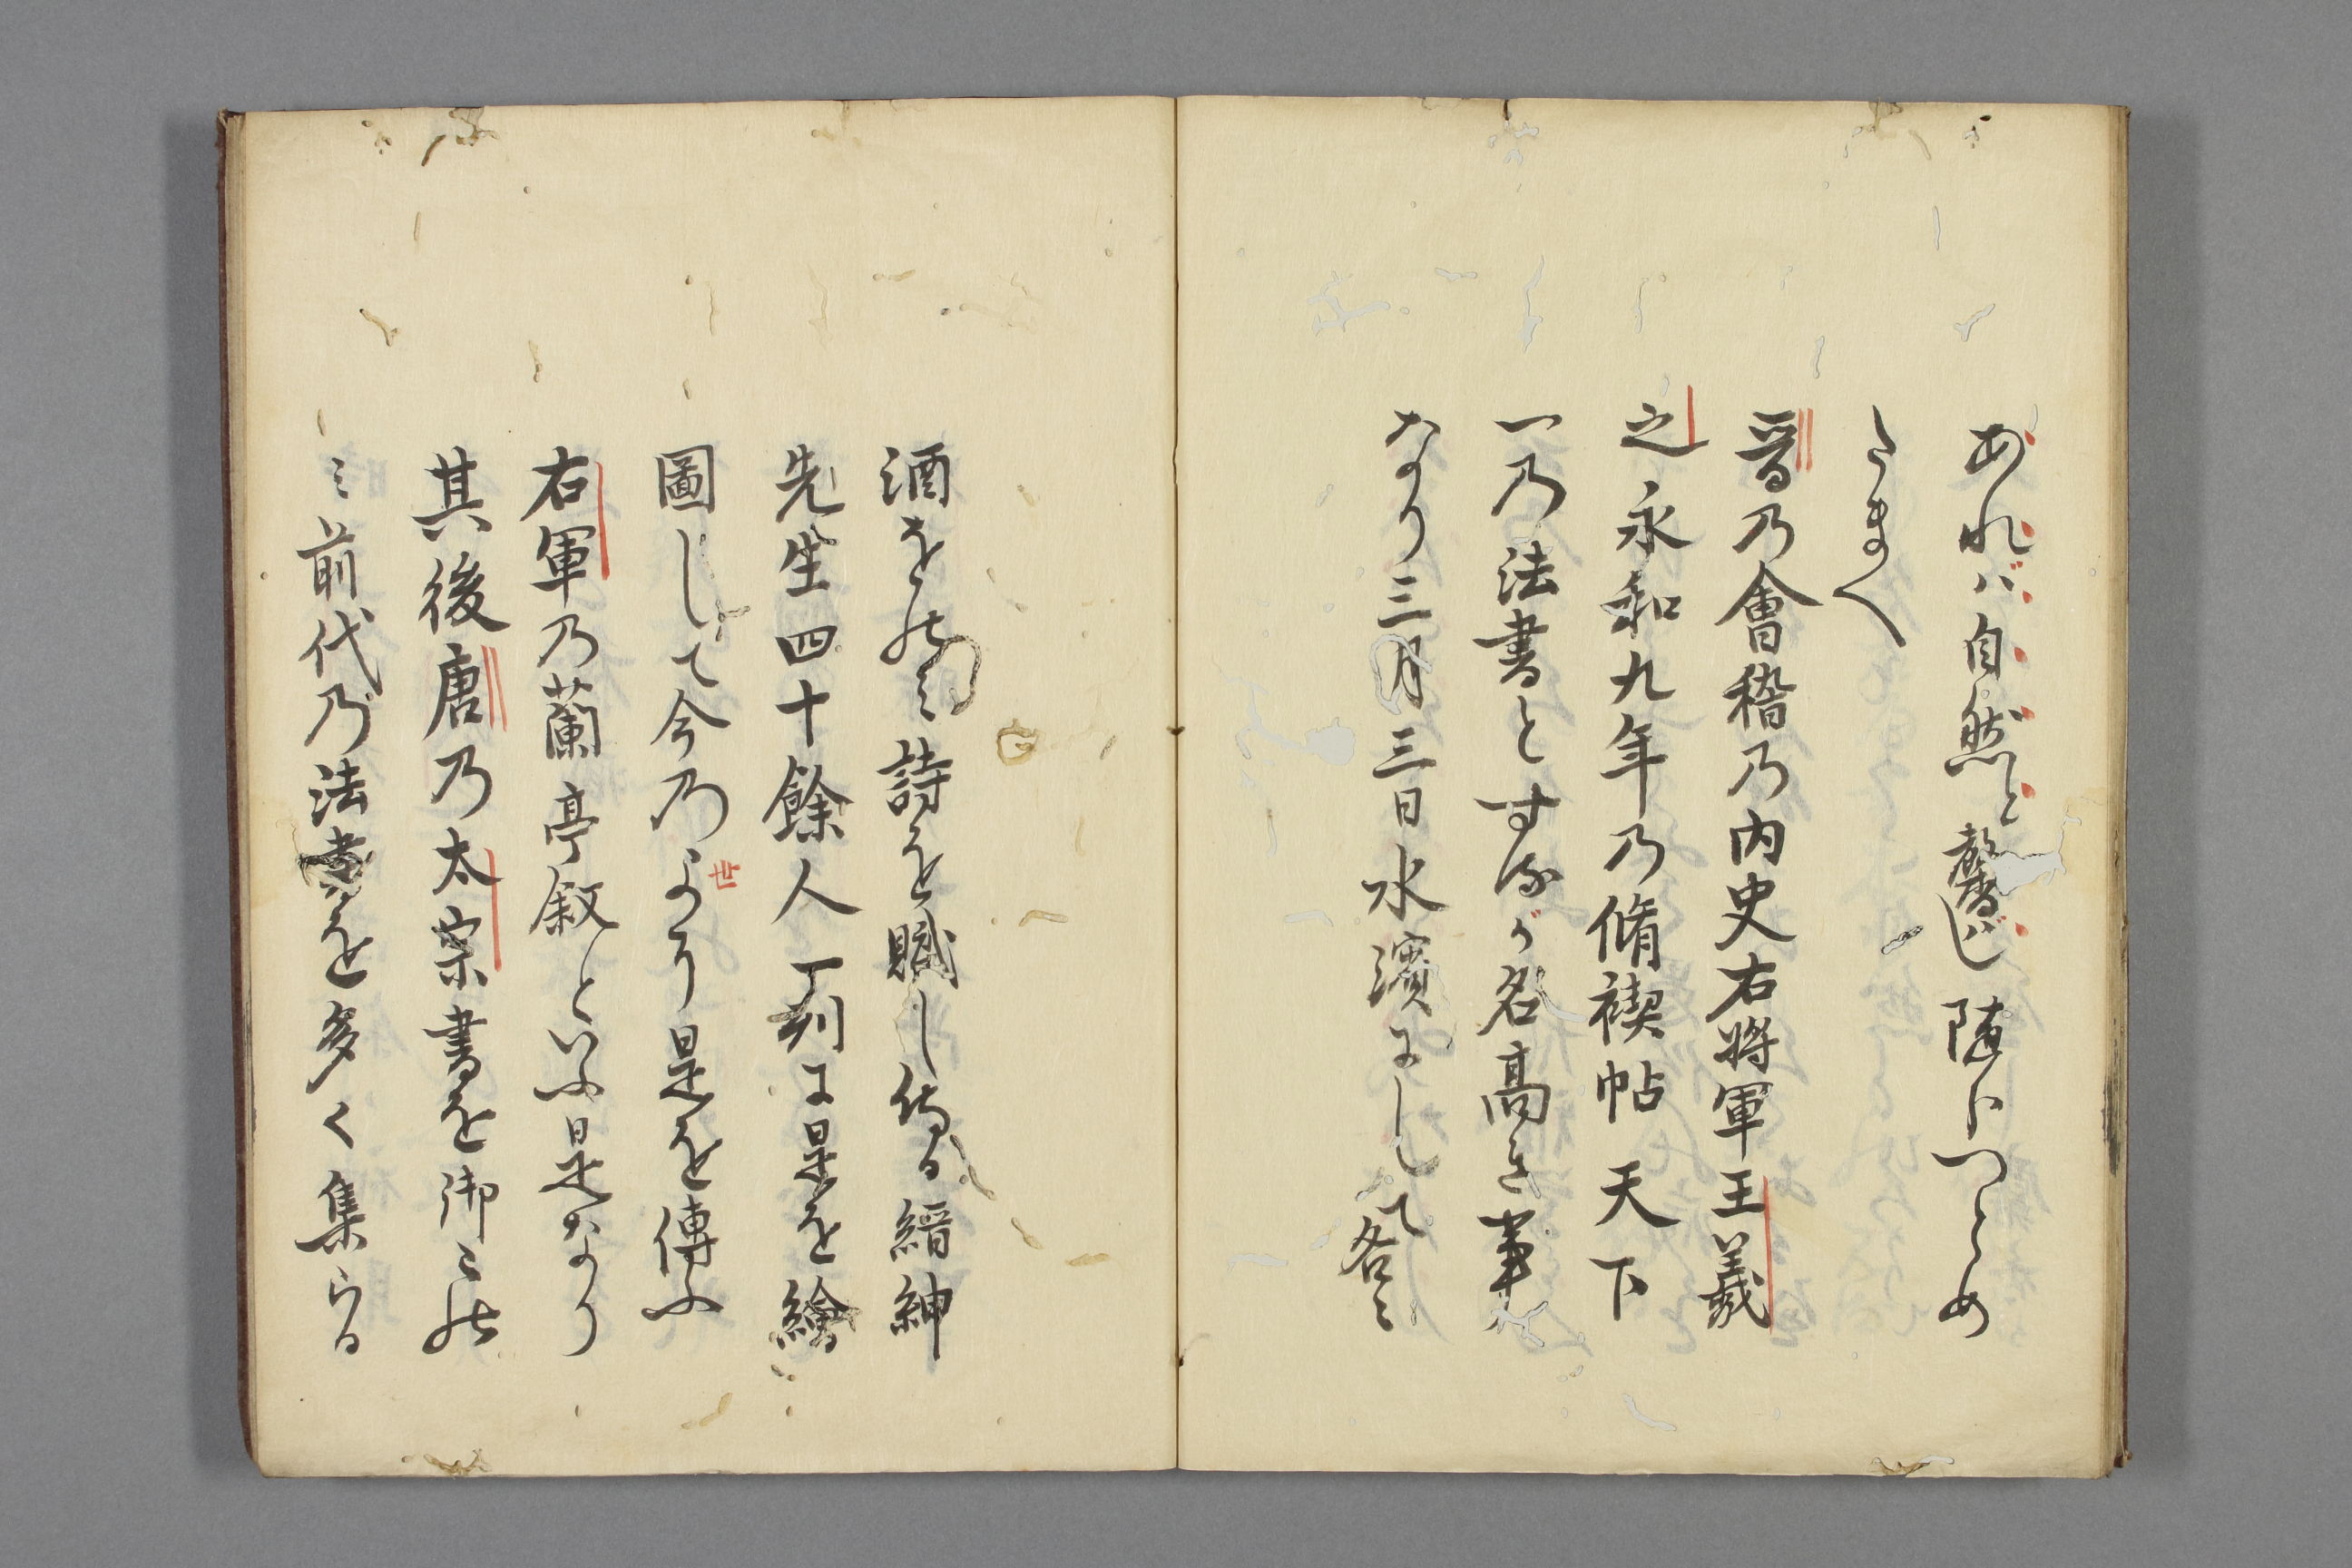 あれバ自然と馨し随分つとめ
たまへ
晋乃會稽乃内史右将軍王羲
之永和九年乃脩禊帖天下
一乃法書とするが名高き事
なり三月三日水濱にして各ミ
酒をのミ詩を賦し侍る縉紳
先生四十餘人一列に是を繪
圖して今乃よまて是を傳ふ
世
右軍乃蘭亭叙といふ是なり
其後唐乃太宗書を御この
ミ前代乃法書を多く集らる